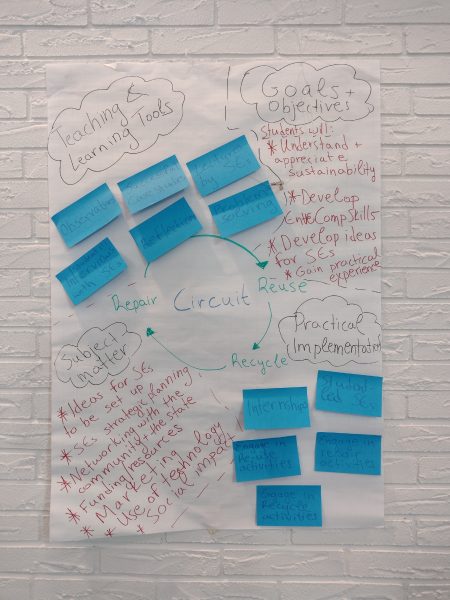 Teaching &
Learning Tools
Goals +
Objectives
Students will:
* Understand +
appreciate
sustainability
* Develop
EntreComp Skills
* Develop ideas
for SEs
* Gain practical
experience
Observation
by SEs
with SEs
Reflection
Problem
solving
Repair
Circuit
Reuse
Recycle
Subject
matter
* Ideas for SEs
to be set up
* SEs strategy planning
* Networking with the
community + the state
* Funding resources
* Marketing
* Use of technology
* Social impact
Practical
Implementation
Internship
Student
led SEs
Engage in
Reuse
activities
Engage in
repair
activities
Engage in
Recycle
activities